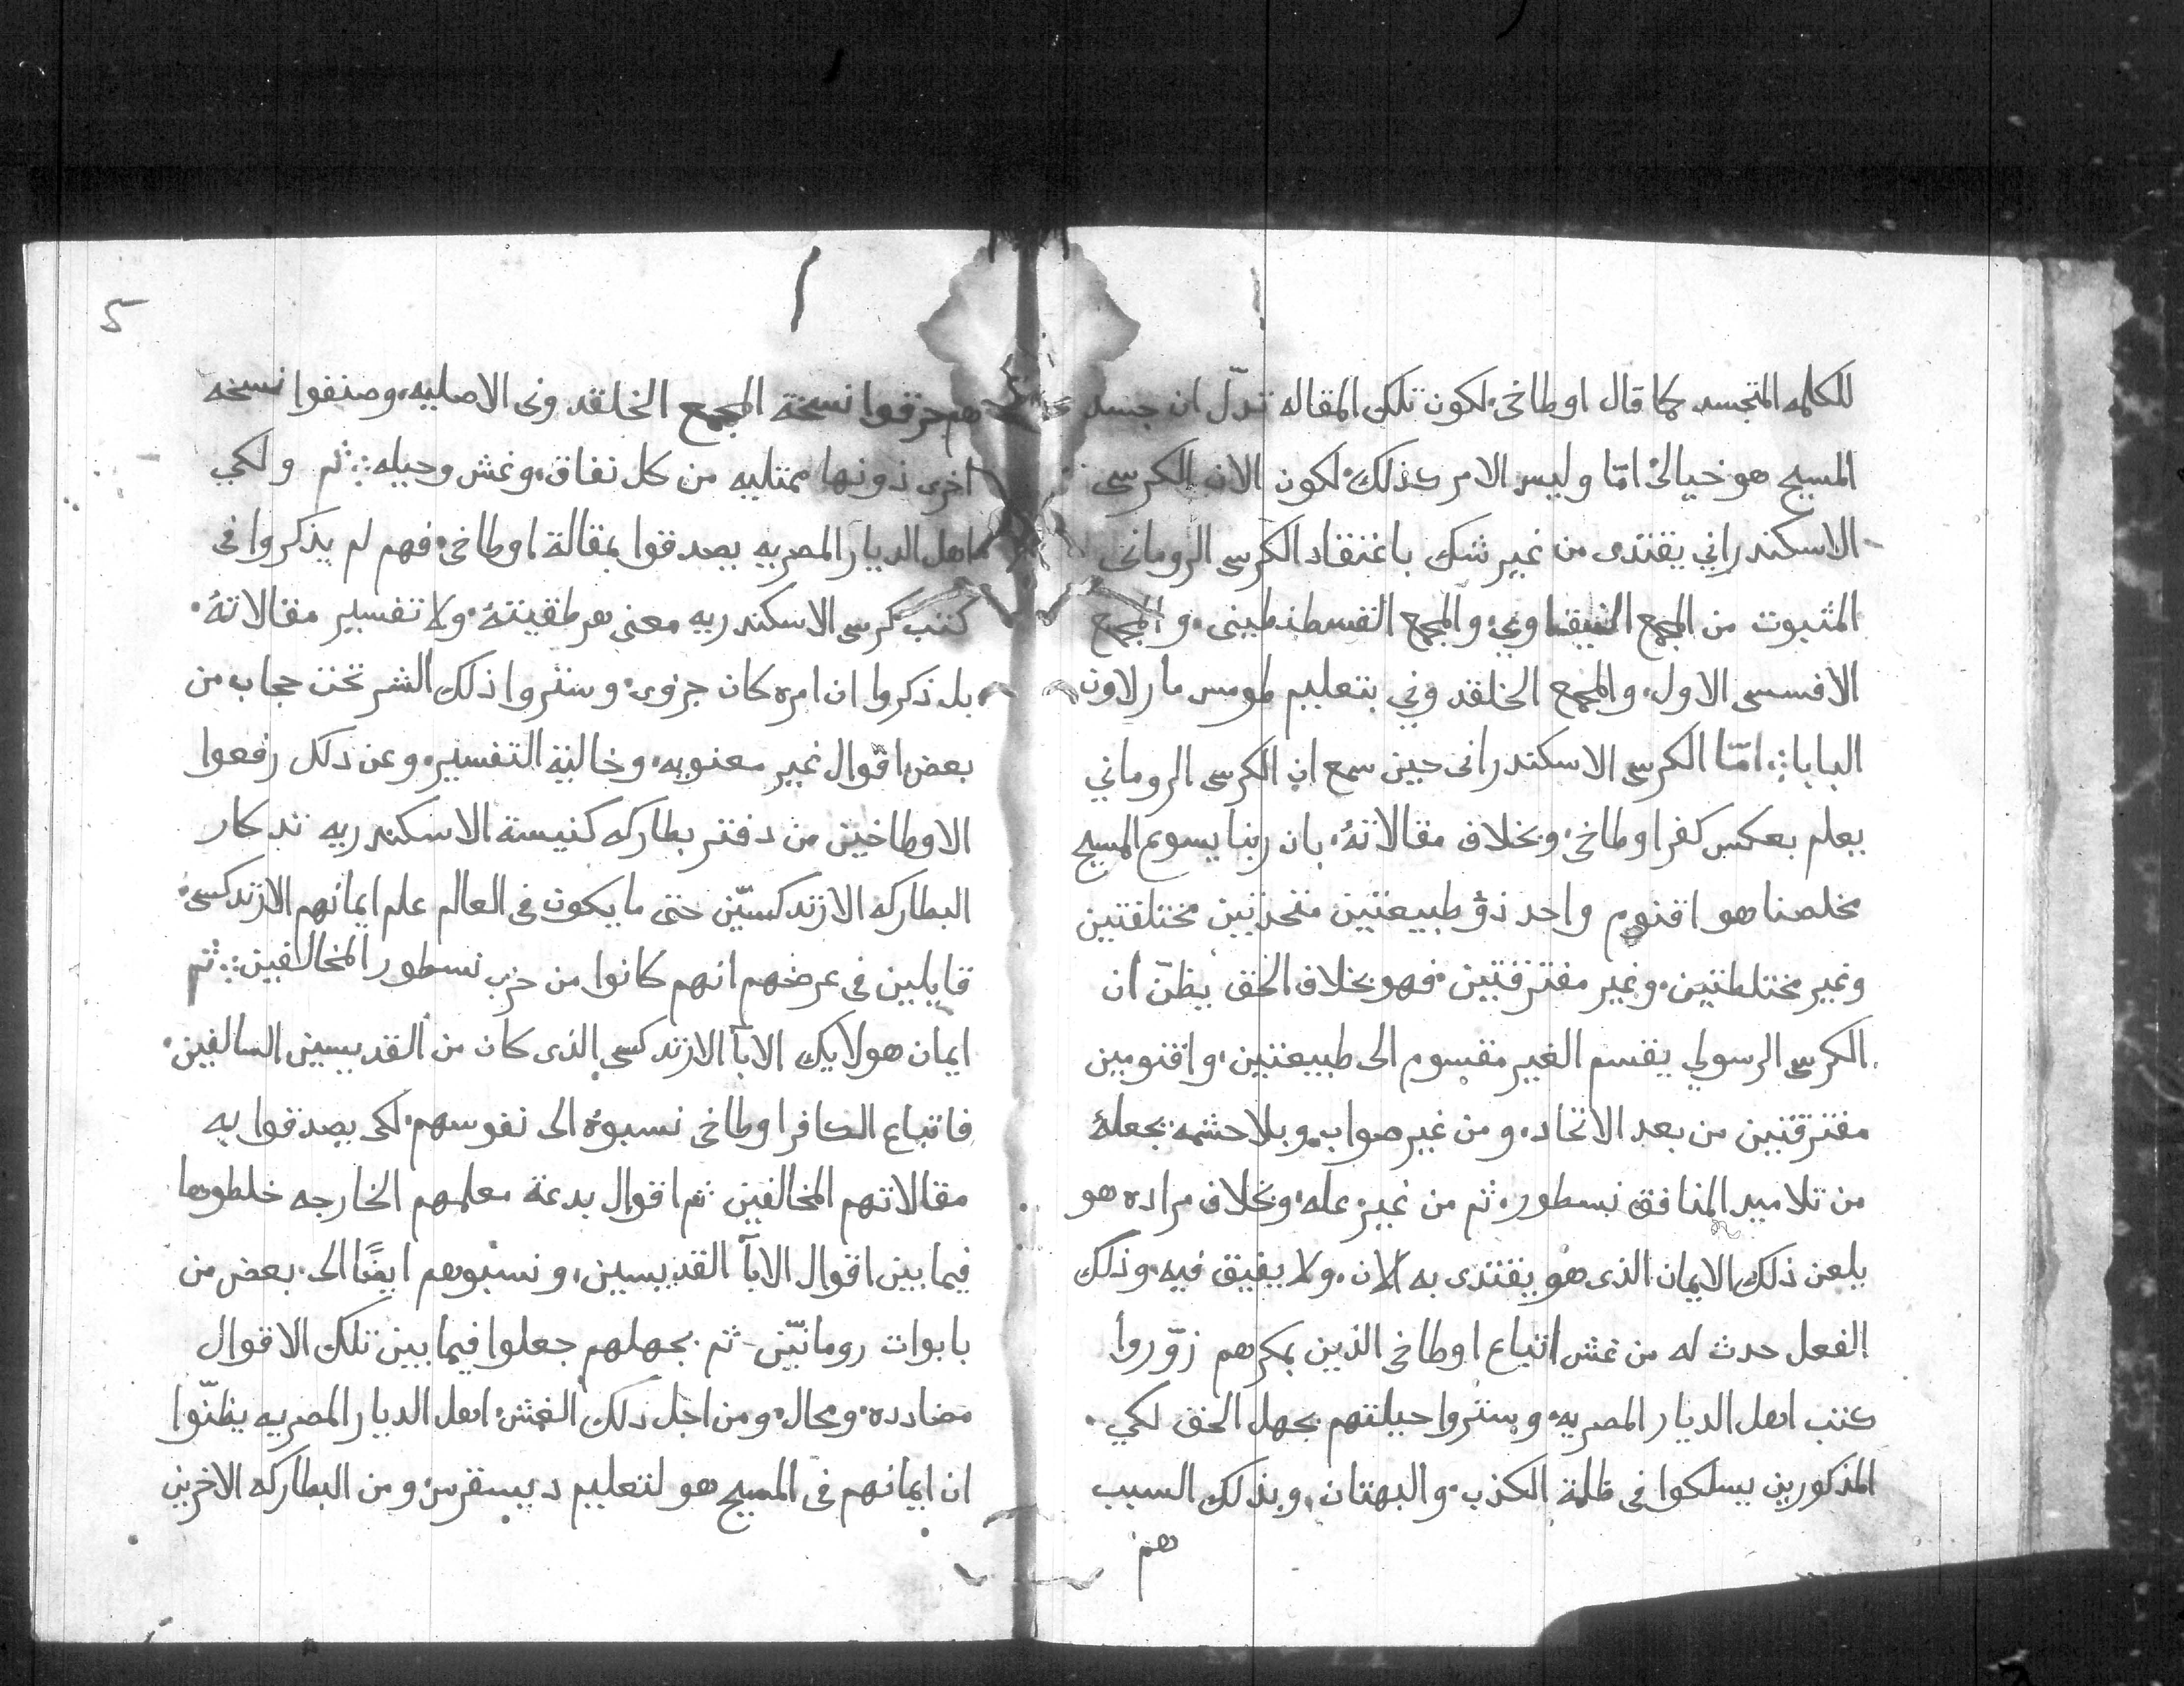 للكلمه المتجسد كما قال اوطاخي، لكون تلك المقاله تدلّ ان جسد
المسيح هو خيالىٌ امّا وليس الامر كذلك، لكون الان الكرسى
الاسكندراني يقتدى من غير شك باعتقاد الكرسى الرومانى
المثبوت من المجمع النيقاوي، والمجمع القسطنطينى، والمجمع
الافسسى الاول، والمجمع الخلقدوني بتعليم طومس مار لاون
البابا ⁘ امّا الكرسى الاسكندرانى حين سمع ان الكرسى الروماني
يعلم بعكس كفر اوطاخي، وبخلاف مقالاتهُ، بان ربنا يسوع المسيح
مخلصنا هو اقنوم واحد ذو طبيعتين متحدتين مختلفتين
وغير مختلطتين، وغير مفترقتين، فهو بخلاف الحق يظنّ ان
الكرسى الرسولي يقسم الغير مقسوم الى طبيعتين، واقنومين
مفترقتين من بعد الاتحاد، ومن غير صواب، وبلا حشمه يجعلهُ
من تلاميد المنافق نسطور، ثم من غير عله، وبخلاف مراده هو
يلعن ذلك الايمان الذى هو يقتدى به الان، ولا يفيق فيه، وذلك
الفعل حدث له من غش اتباع اوطاخي الذين بمكرهم زوّروا
كتب اهل الديار المصريه، وستروا حيلتهم بجهل الحق لكي
المذكورين يسلكوا فى ظلمة الكذب، والبهتان، وبذلك السبب
هم
5
هم حرقوا نسخة المجمع الخلقدونى الاصليه، وصنفوا نسخه
اخرى دونها ممتليه من كل نفاق، وغش وحيله ⁘ ثم ولكي
اهل الديار المصريه يصدقوا بمقالة اوطاخي، فهم لم يذكروا فى
كتب كرسى الاسكندريه معنى هرطقيتهُ، ولا تفسير مقالاتهُ،
بل ذكروا ان امره كان جزوى، وستروا ذلك الشر تحت حجاب من
بعض اقوال غير معنويه، وخالية التفسير، وعن دلك رفعوا
الاوطاخيين من دفتر بطاركه كنيسة الاسكندريه تدكار
البطاركه الارتدكسيّين حتى ما يكون فى العالم علم ايمانهم الارتدكسى،
قايلين فى عرضهم انهم كانوا من حزب نسطور المخالفين ⁘ ثم
ايمان هولايك الابآ الارتدكسى الذى كان من القديسين السالفين،
فاتباع الكافر اوطاخى نسبوهُ الى نفوسهم، لكى يصدقوا به
مقالاتهم المخالفين ثم اقوال بدعة معلمهم الخارجه خلطوها
فيما بين اقوال الابآ القديسين، ونسبوهم ايضًا الى بعض من
بابوات رومانيّين ثم بجهلهم جعلوا فيما بين تلك الاقوال
مضادده، ومحال، ومن اجل دلك الغش، اهل الديار المصريه يظنّوا
ان ايمانهم فى المسيح هو لتعليم ديسقرس، ومن البطاركه الاخرين